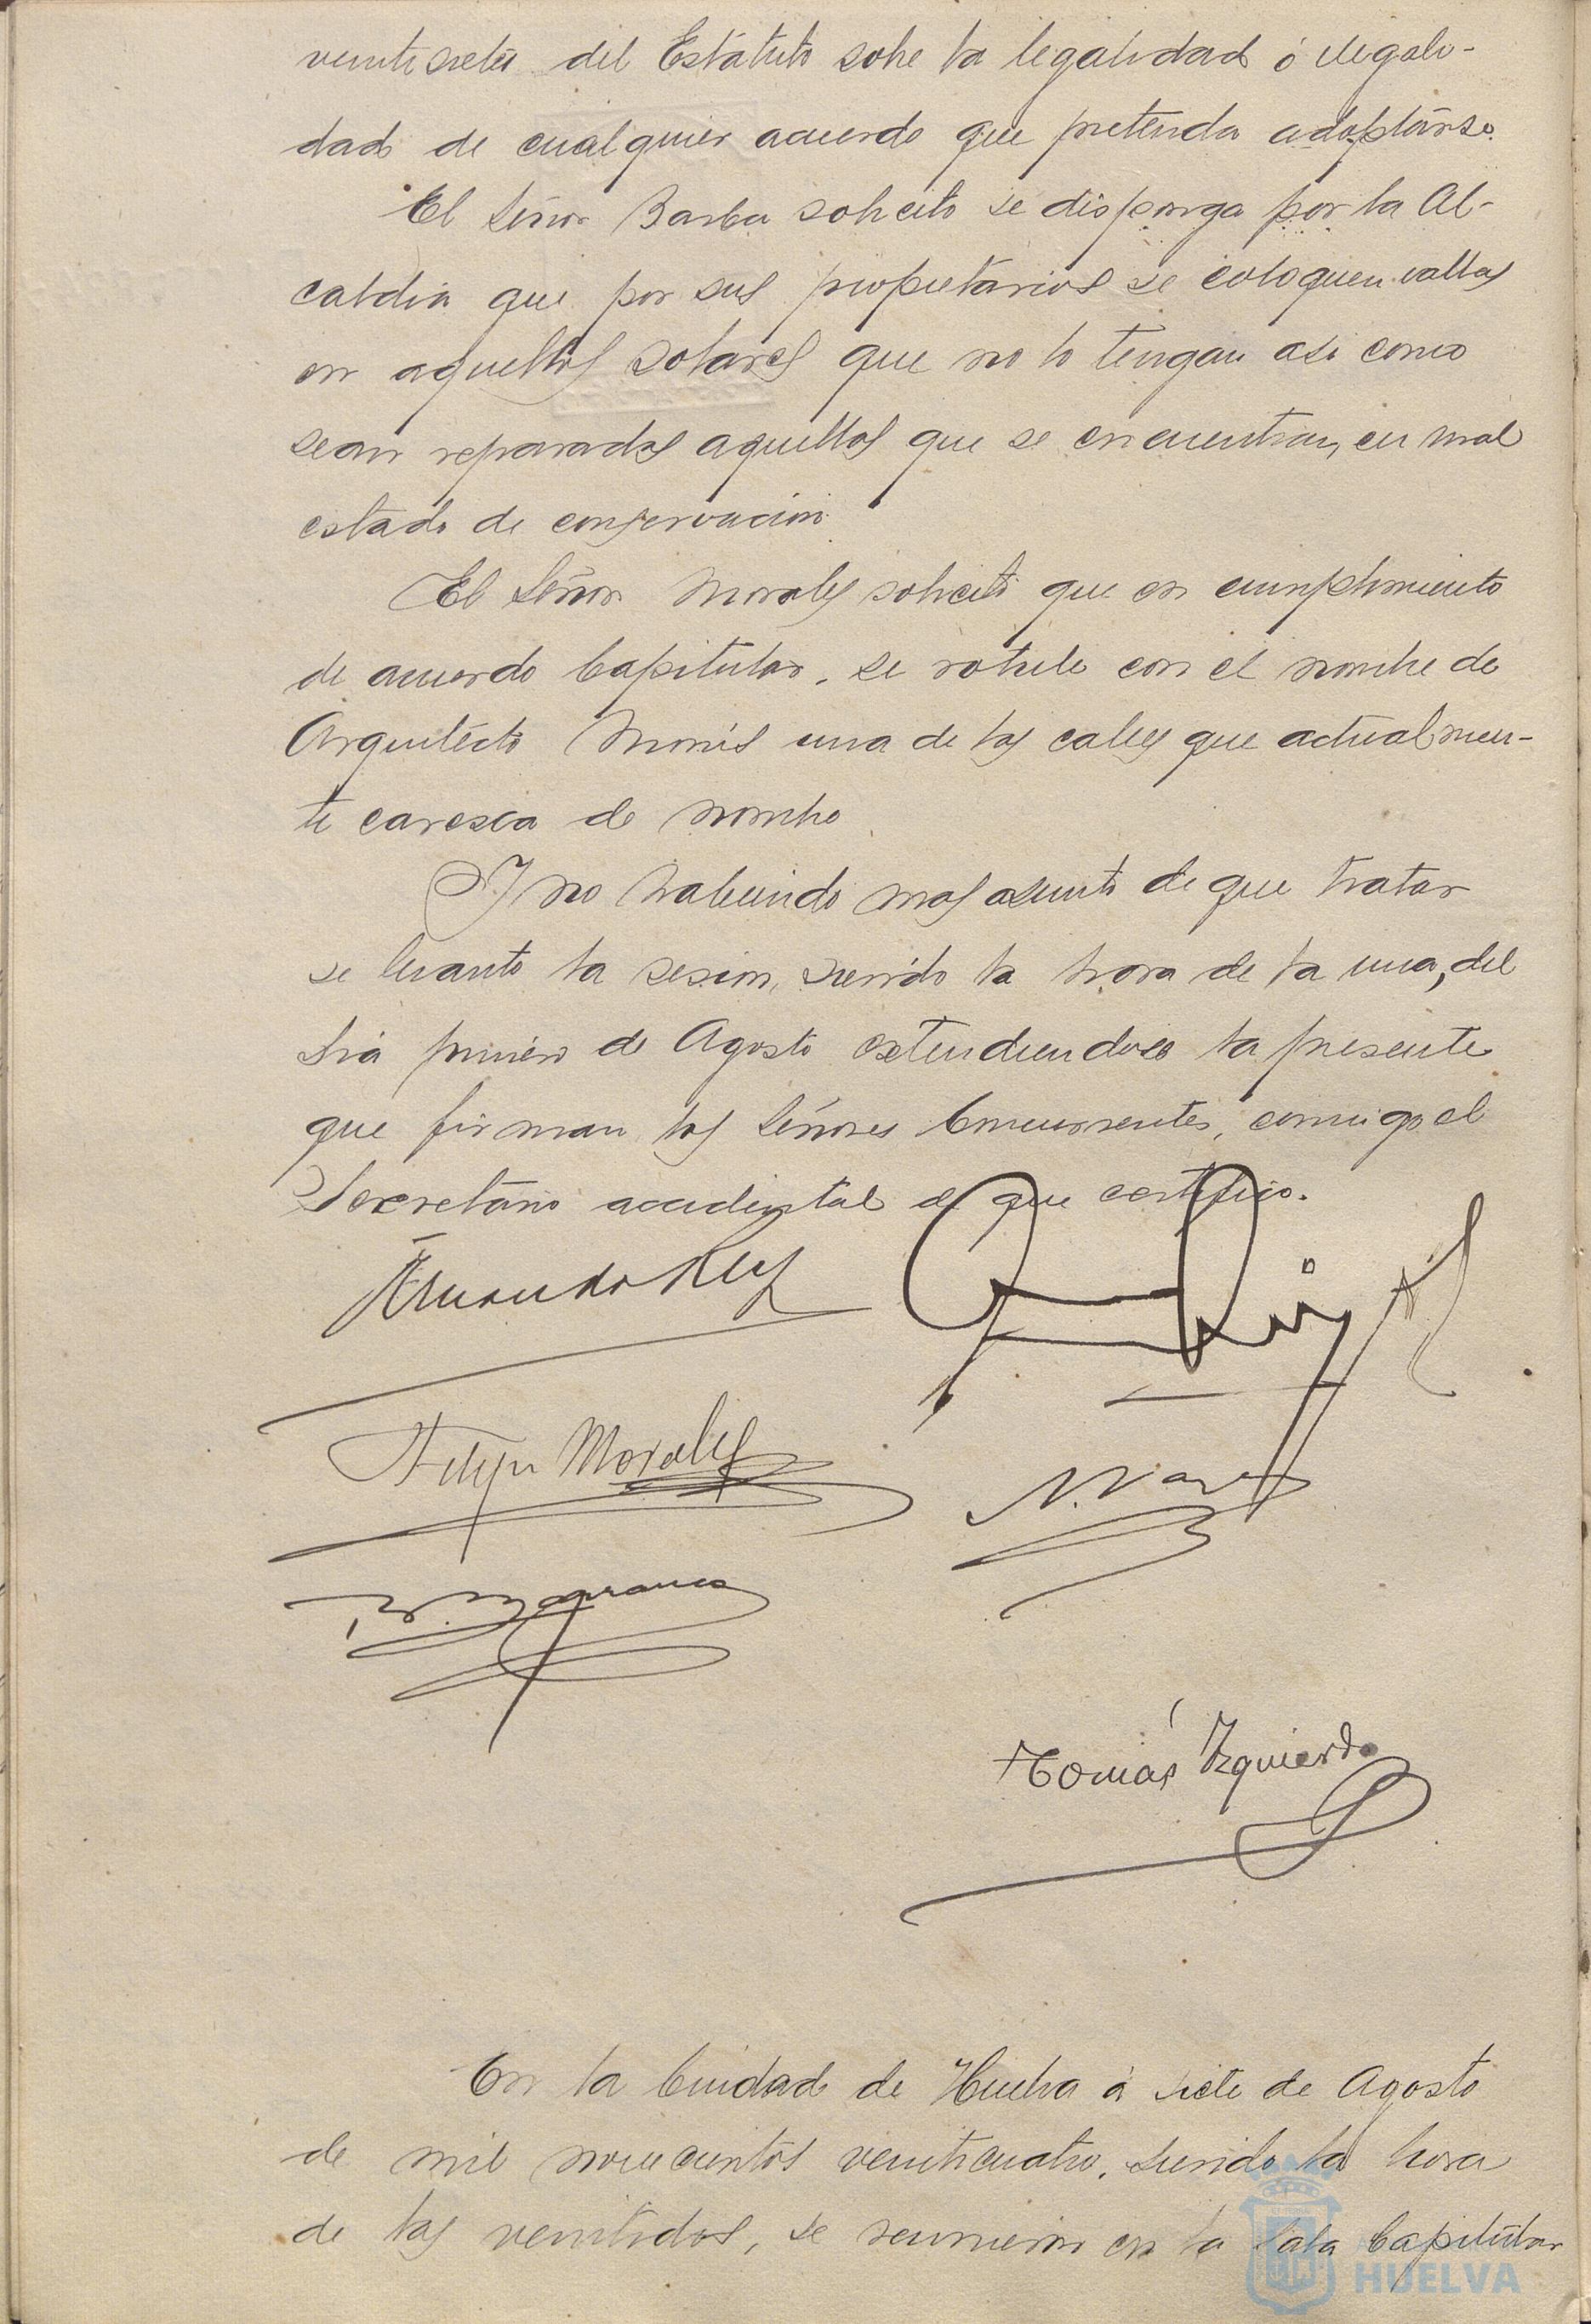 veintisiete del Estatuto sobre la legalidad ó ilegali-
dad de cualquier acuerdo que pretenda adoptarse.
El Señor Barba solicitó se disponga por la Al-
caldia que por sus propietarios se coloquen vallas
en aquellos solares que no lo tengan asi como
sean reparadas aquellas que se encuentran, en mal
estado de conservacion.
El Señor Morales solicitó que en cumplimiento
de acuerdo Capitular, se rotule con el nombre de
Arquitecto Monís una de las calles que actualmen-
te caresca de nombre
Y no habiendo mas asunto de que tratar
se levanto la sesion, siendo la hora de la una, del
dia primero de Agosto extendiendose la presente
que firman los Señores Concurrentes, conmigo el
Secretario accidental de que certifico.
Felipe Morales
Tomás Izquierdo
En la Ciudad de Huelva á siete de Agosto
de mil novecientos veinticuatro, siendo la hora
de las veintidos, se reunieron en la Sala Capitular
HUELVA